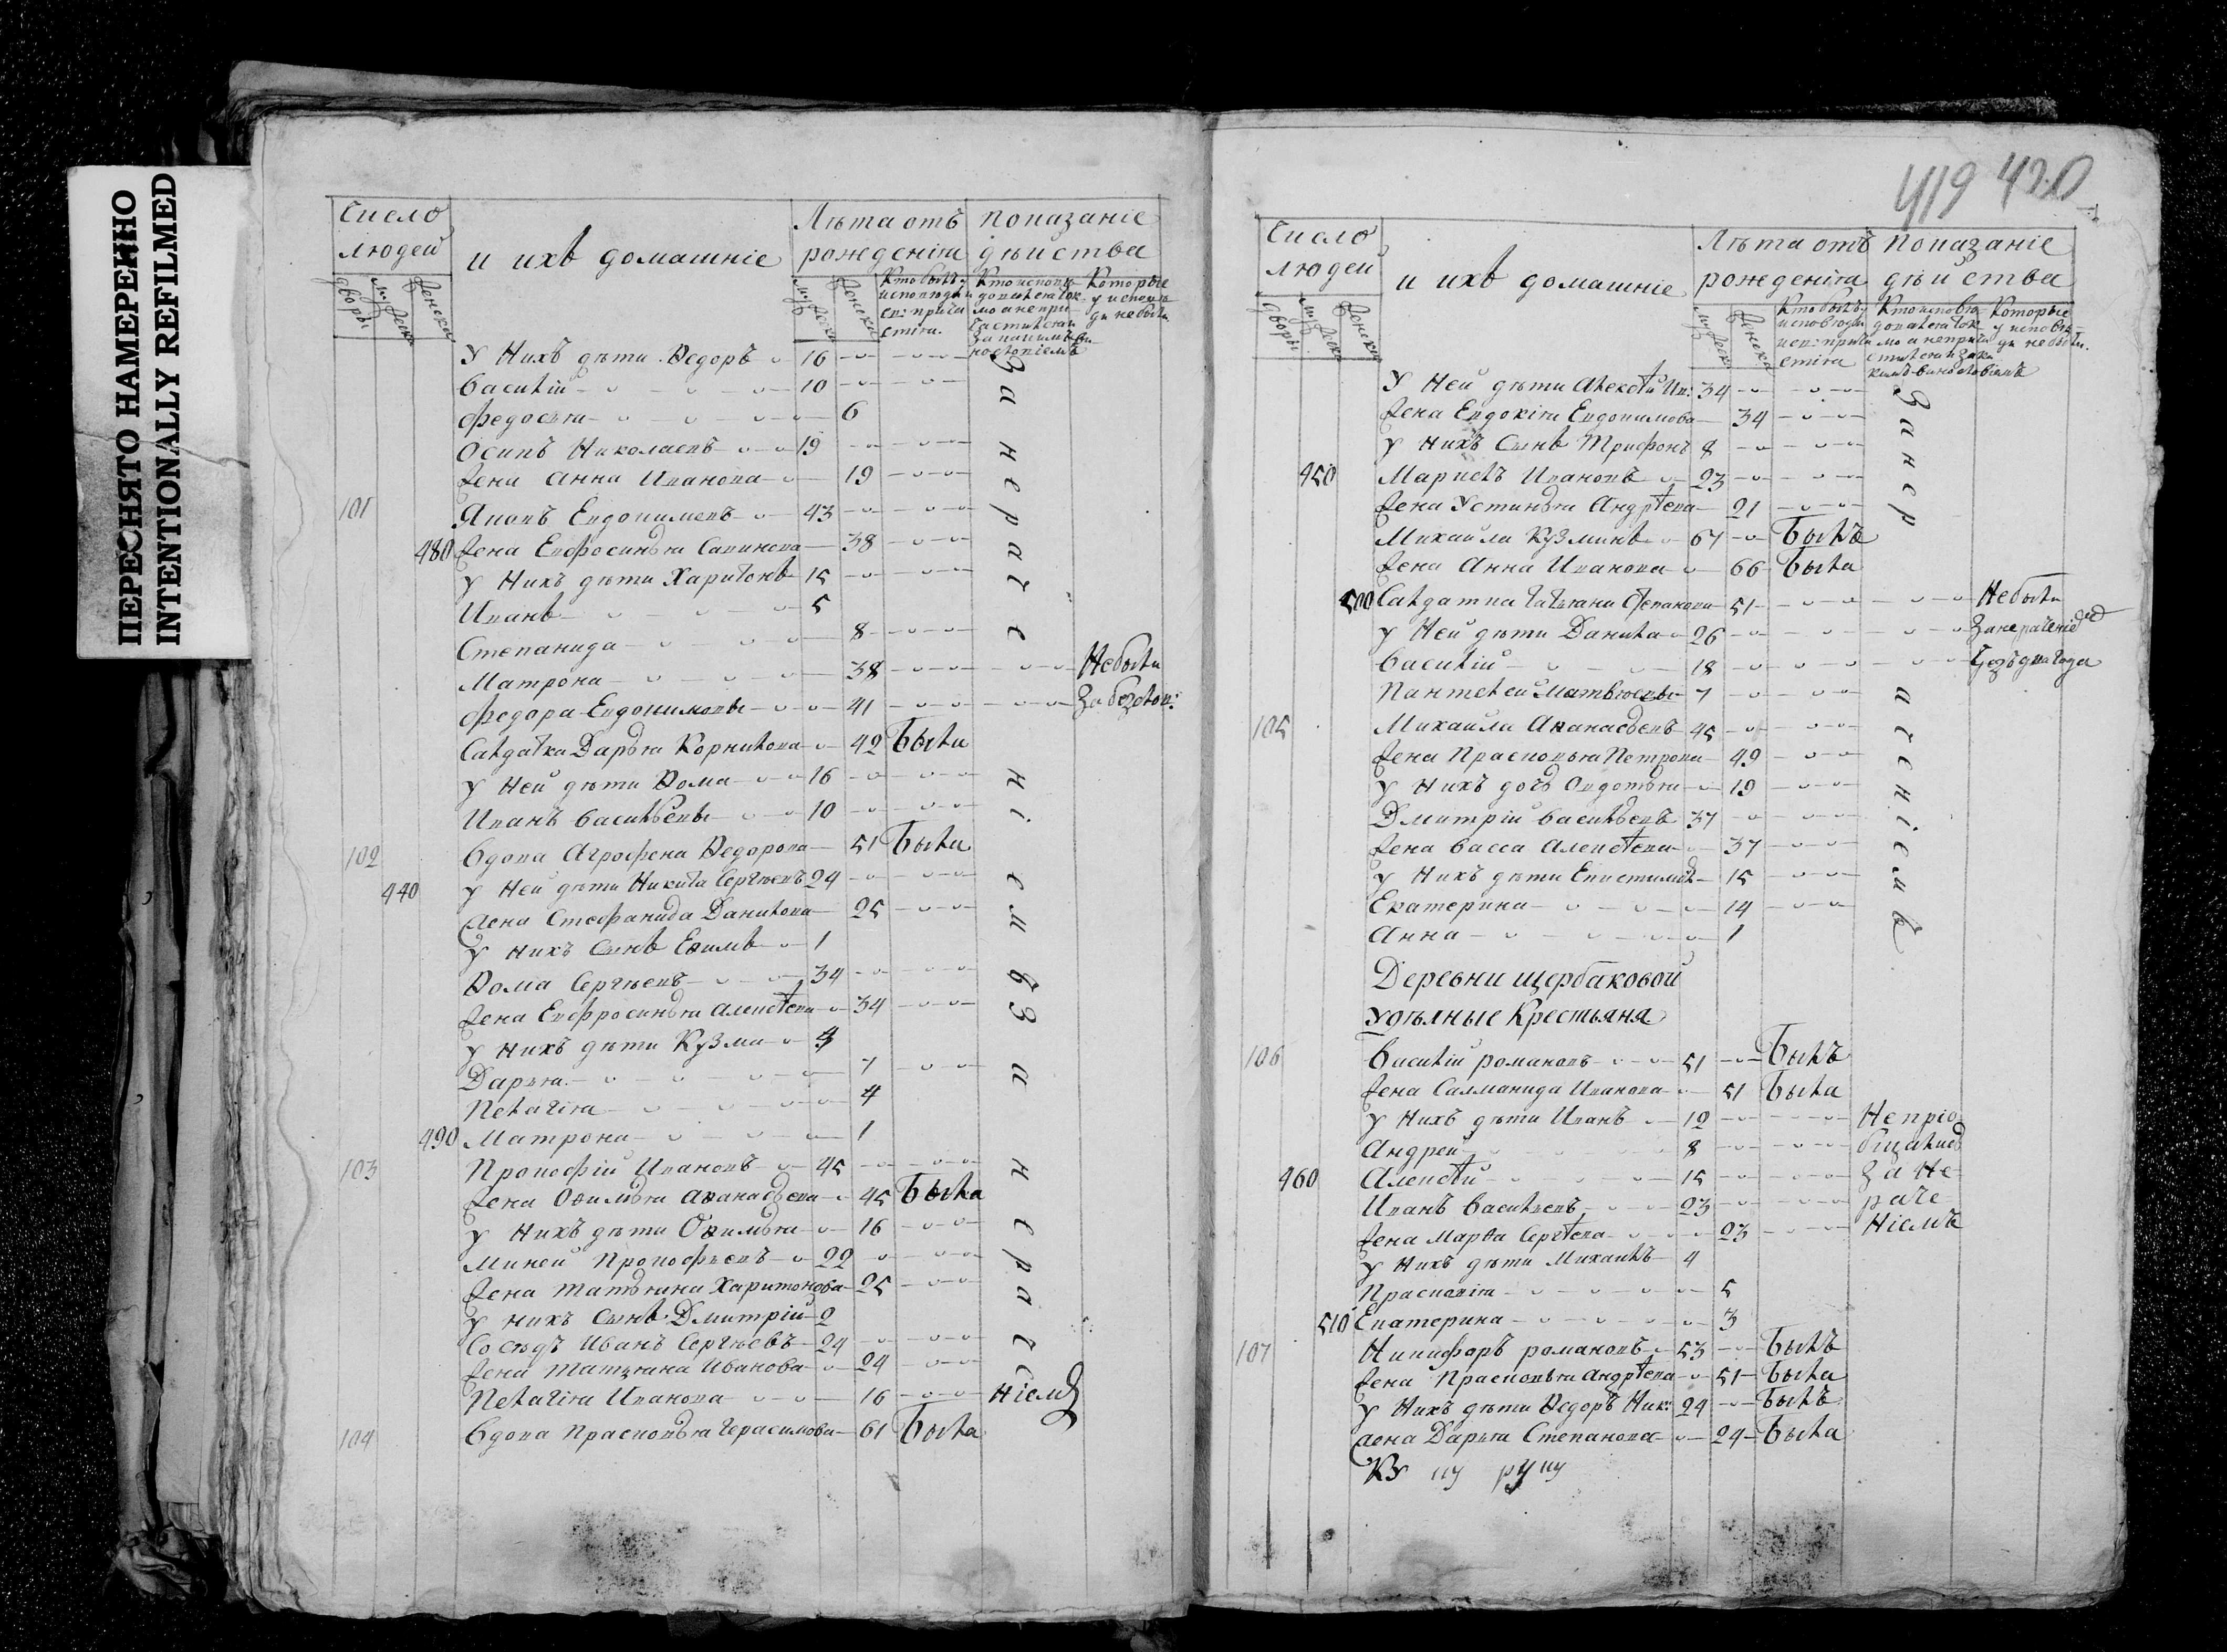 ПЕРЕСНЯТО НАМЕРЕННО
INTENTIONALLY REFILMED
Число людей
дворы
мужеска
женска
и ихъ домашніе
Лѣта отъ рожденія
мужеска
женска
Показаніе дѣиства
Которые у исповѣди небыли
У Нихъ дѣти Ѳедоръ 16
Василій 10
Федосья 6
Осипъ Николаевъ 19
Жена Анна Иванова 19
101 Яковъ Евдокимовъ 43
480 Жена Евфросинья Савинова 38
У Нихъ дѣти Харитонъ 15
Иванъ 5
Степанида 8
Матрона 38 Небыли
Федора Евдокимовы 41
Салдатка Дарья Корнилова 42 была
У Ней дѣти Ѳома 16
Иванъ Васильевы 10
102 Вдова Агрофена Ѳедорова 51 была
440 У Ней дѣти Никита Сергѣевъ 24
Жена Стефанида Данилова 25
У Нихъ Сынъ Еѳимъ 1
Ѳома Сергѣевъ 34
Жена Евфросинья Алексѣева 34
У Нихъ дѣти Кузма
Дарья 7
Пелагія 4
490 Матрона 1
103 Прокофій Ивановъ 45
Жена Оѳимья Аѳанасьева 45 была
У Нихъ дѣти Оѳимья 16
Миней Прокофьевъ 22
Жена Татьяна Харитонова 25
У нихъ Сынъ Дмитрій 2
Сосѣдъ Иванъ Сергѣевъ 24
Жена Татьяна Иванова 24
Пелагія Иванова 16
104 Вдова Прасковья Герасимова 61 была
За нераченіемъ За нераченіемъ
419 420
Число людей
дворы
мужеска
женска
и ихъ домашніе
Лѣта отъ рожденія
мужеска
женска
Показаніе дѣиства
Которые у исповѣди небыли.
У Ней дѣти Алексѣй Ив: 34
Жена Евдокія Евдокимова 34
У Нихъ Сынъ Трифонъ 8
450 Маркелъ Ивановъ 23
Жена Устинья Андрѣева 21
Михайла Кузминъ 67 былъ
Жена Анна Иванова 66 была
500 Салдатка Татьяна Степанова 51 Небыли
У Ней дѣти Данила 26 За нераченіе
Василій 18
Пантелей Матвѣевы 7
105 Михайла Аѳанасьевъ 45
Жена Прасковья Петрова 49
У Нихъ дочь Овдотья 19
Дмитрій Васильевъ 37
Жена Васса Алексѣева 37
У Нихъ дѣти Епистимія 15
Екатерина 14
Анна 1
За нераченіемъ
Деревни Щербаковой
Удѣлные Крестьяня
106 Василій Романовъ 51 былъ
Жена Саламанида Иванова 51 была
У Нихъ дѣти Иванъ 12 Непріо
Андрей 8 бщались
460 Алексѣй 15 За Не
Иванъ Васильевъ 23 раче
Жена Марѳа Сергѣева 23 ніемъ
У Нихъ дѣти Михаилъ 4
Прасковія 5
510 Екатерина 3
107 Никифоръ Романовъ 53 былъ
Жена Прасковья Андрѣева 51 была
У Нихъ дѣти Ѳедоръ Ник: 24 былъ
Жена Дарья Степанова 24 была